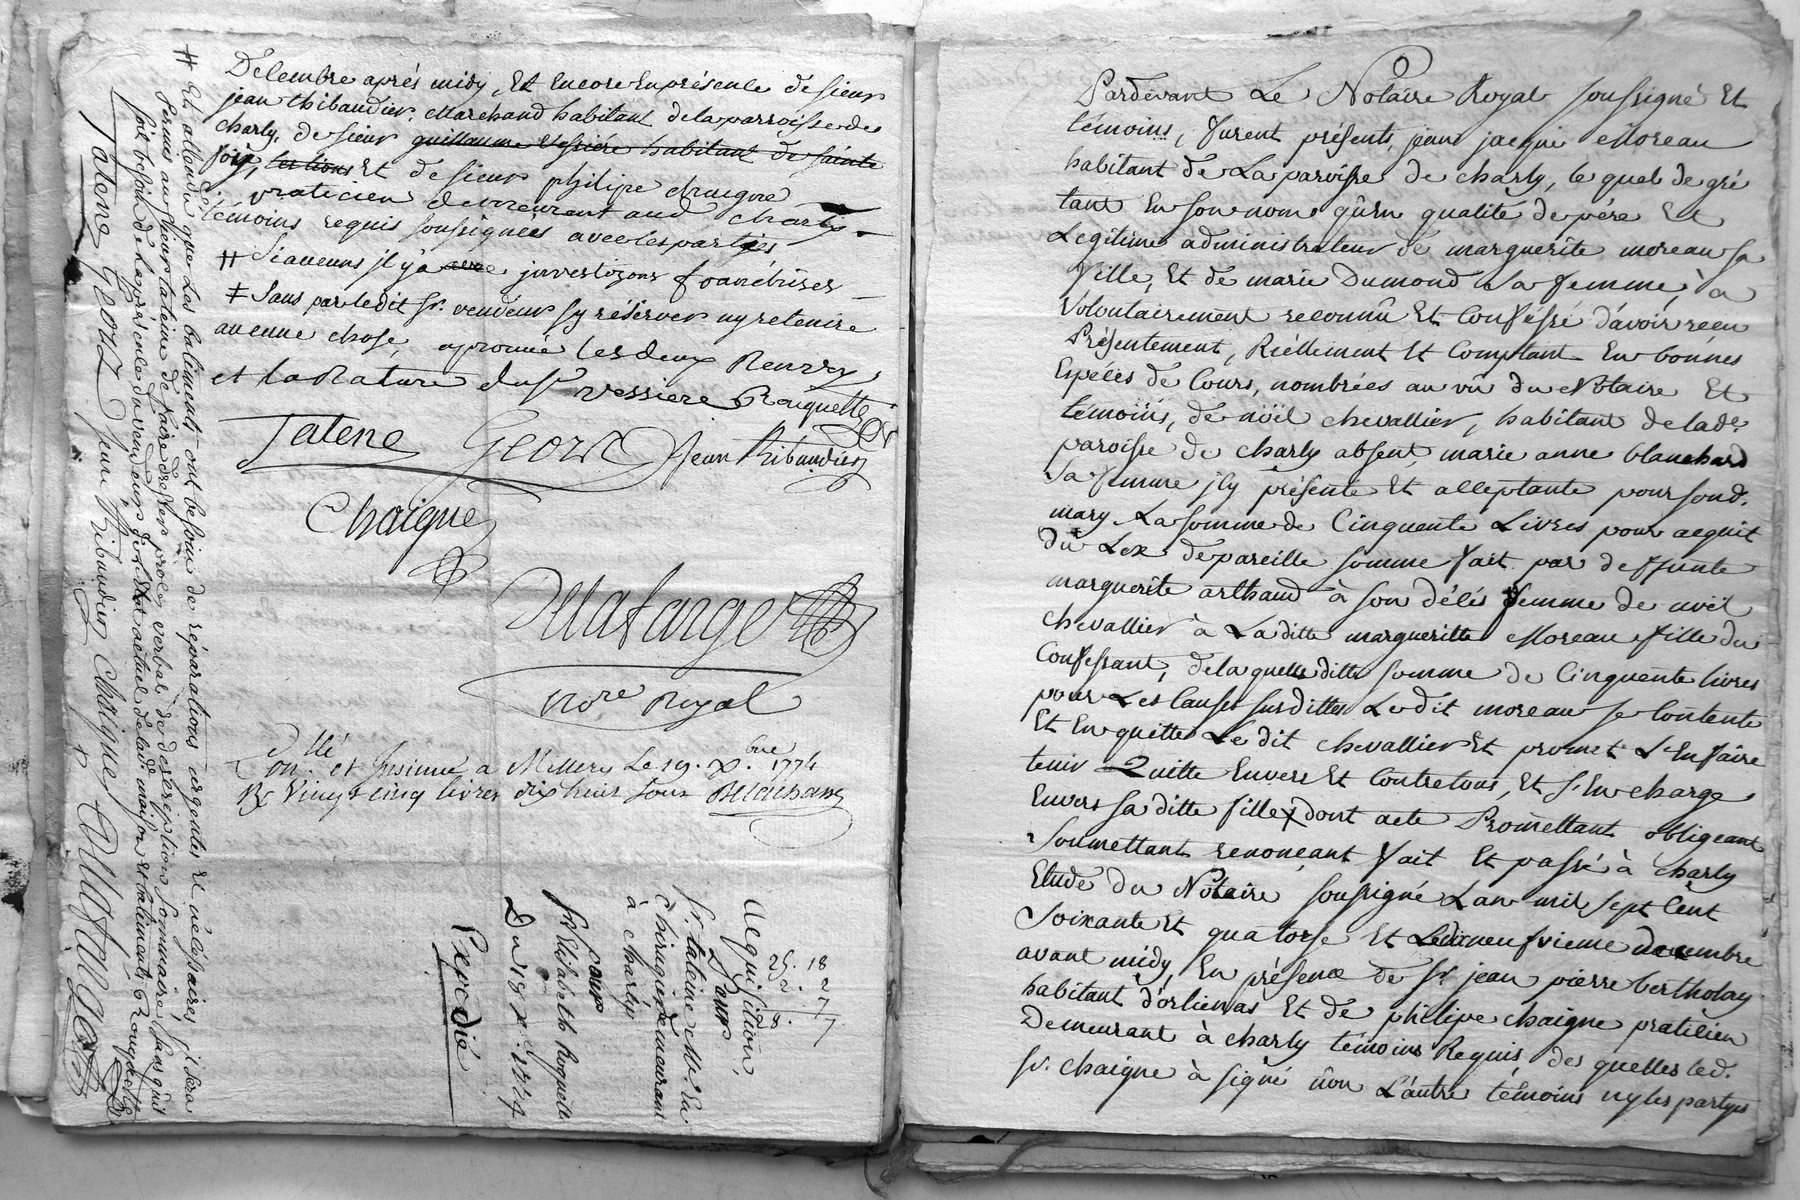 Décembre aprés midy, Et Encore En présence de sieur
jean thibaudier, Marchand habitant de la parroisse de
charly, de sieur guillaume Vessiére habitant de sainte
foix, les lions Et de sieur philipe chaigne
praticien demeurant aud. charly
témoins requis soussignés avec les parties
# Si aucuns jl y a investizons francs
# Sans par ledit Sr. vendeur sy réserver ny retenire
aucune chose, aprouvée les deux Renvoy,
et la Rature du Sr vessiere Roiquette
Jatene Geory Jean Thibaudier
Chaigne
Dellafarge
no.re Royal
Con.llé et Insinué a Millery Le 19. x.bre 1774
Rx Vingt cinq livres dix huit sous
# Et attendu que Les batiments ont besoin de réparations urgentes Et nécéssaires, jl sera
Permis au sieur tatene de faire dresser procés verbal de description sommaire, sans qu'il
soit besoin de la présence du vendeur de l'état actuel de lad. maison et batiments Roiquette
Jatene Geory Jean Thibaudier Chaigne Dellafarge
25. 18
2. 2
7
28. 7
acquisition,
Pour
Sr. tatene M.e En
Chirugie demeurant
à charly
Contre
Sr Elisabeth Roquette
Du 18 x. 1774
Expedié
Pardevant Le Notaire Royal soussigné Et
témoins, furent présents, jean jacque Moreau
habitant de La paroisse de charly, le quel de gré
tant En son nom qu'En qualité de pére Et
Legitime administrateur de marguerite moreau sa
fille, Et de marie Dumond sa femme, à
Volontairement reconnû Et Confessé d'avoir reçu
Présentement, Réellement Et Comptant En bonnes
Espéces de Cours, nombrées au vû du Notaire Et
témoins, de nöel chevallier, habitant de lade
paroisse de charly absent, marie anne blanchard
sa femme jcy présente Et acceptante pour sond.
mary La somme de Cinquente Livres pour acquit
du Lex de pareille somme fait par deffunte
marguerite arthaud à son décés femme de nöel
chevallier à La ditte margueritte Moreau fille du
Confessant, de la quelle ditte somme de Cinquente livres
pour Les Causes susdittes Le dit moreau se Contente
Et En quitte Le dit chevallier Et promet L'En faire
tenir Quitte Envers Et Contre tous, Et s'En charge
Envers sa ditte fille dont acte Promettant obligeant
Soumettant renonçant fait Et passé à charly
Etude du Notaire soussigné L'an mil sept Cent
Soixante Et quatorse Et Ledixneufvieme decembre
avant midy, En présence de Sr jean pierre bertholay
habitant d'orlienas Et de philipe chaigne praticien
Demeurant à charly témoins Requis des quelles led.
Sr. chaigne à signé non L'autre témoins ny les partyes